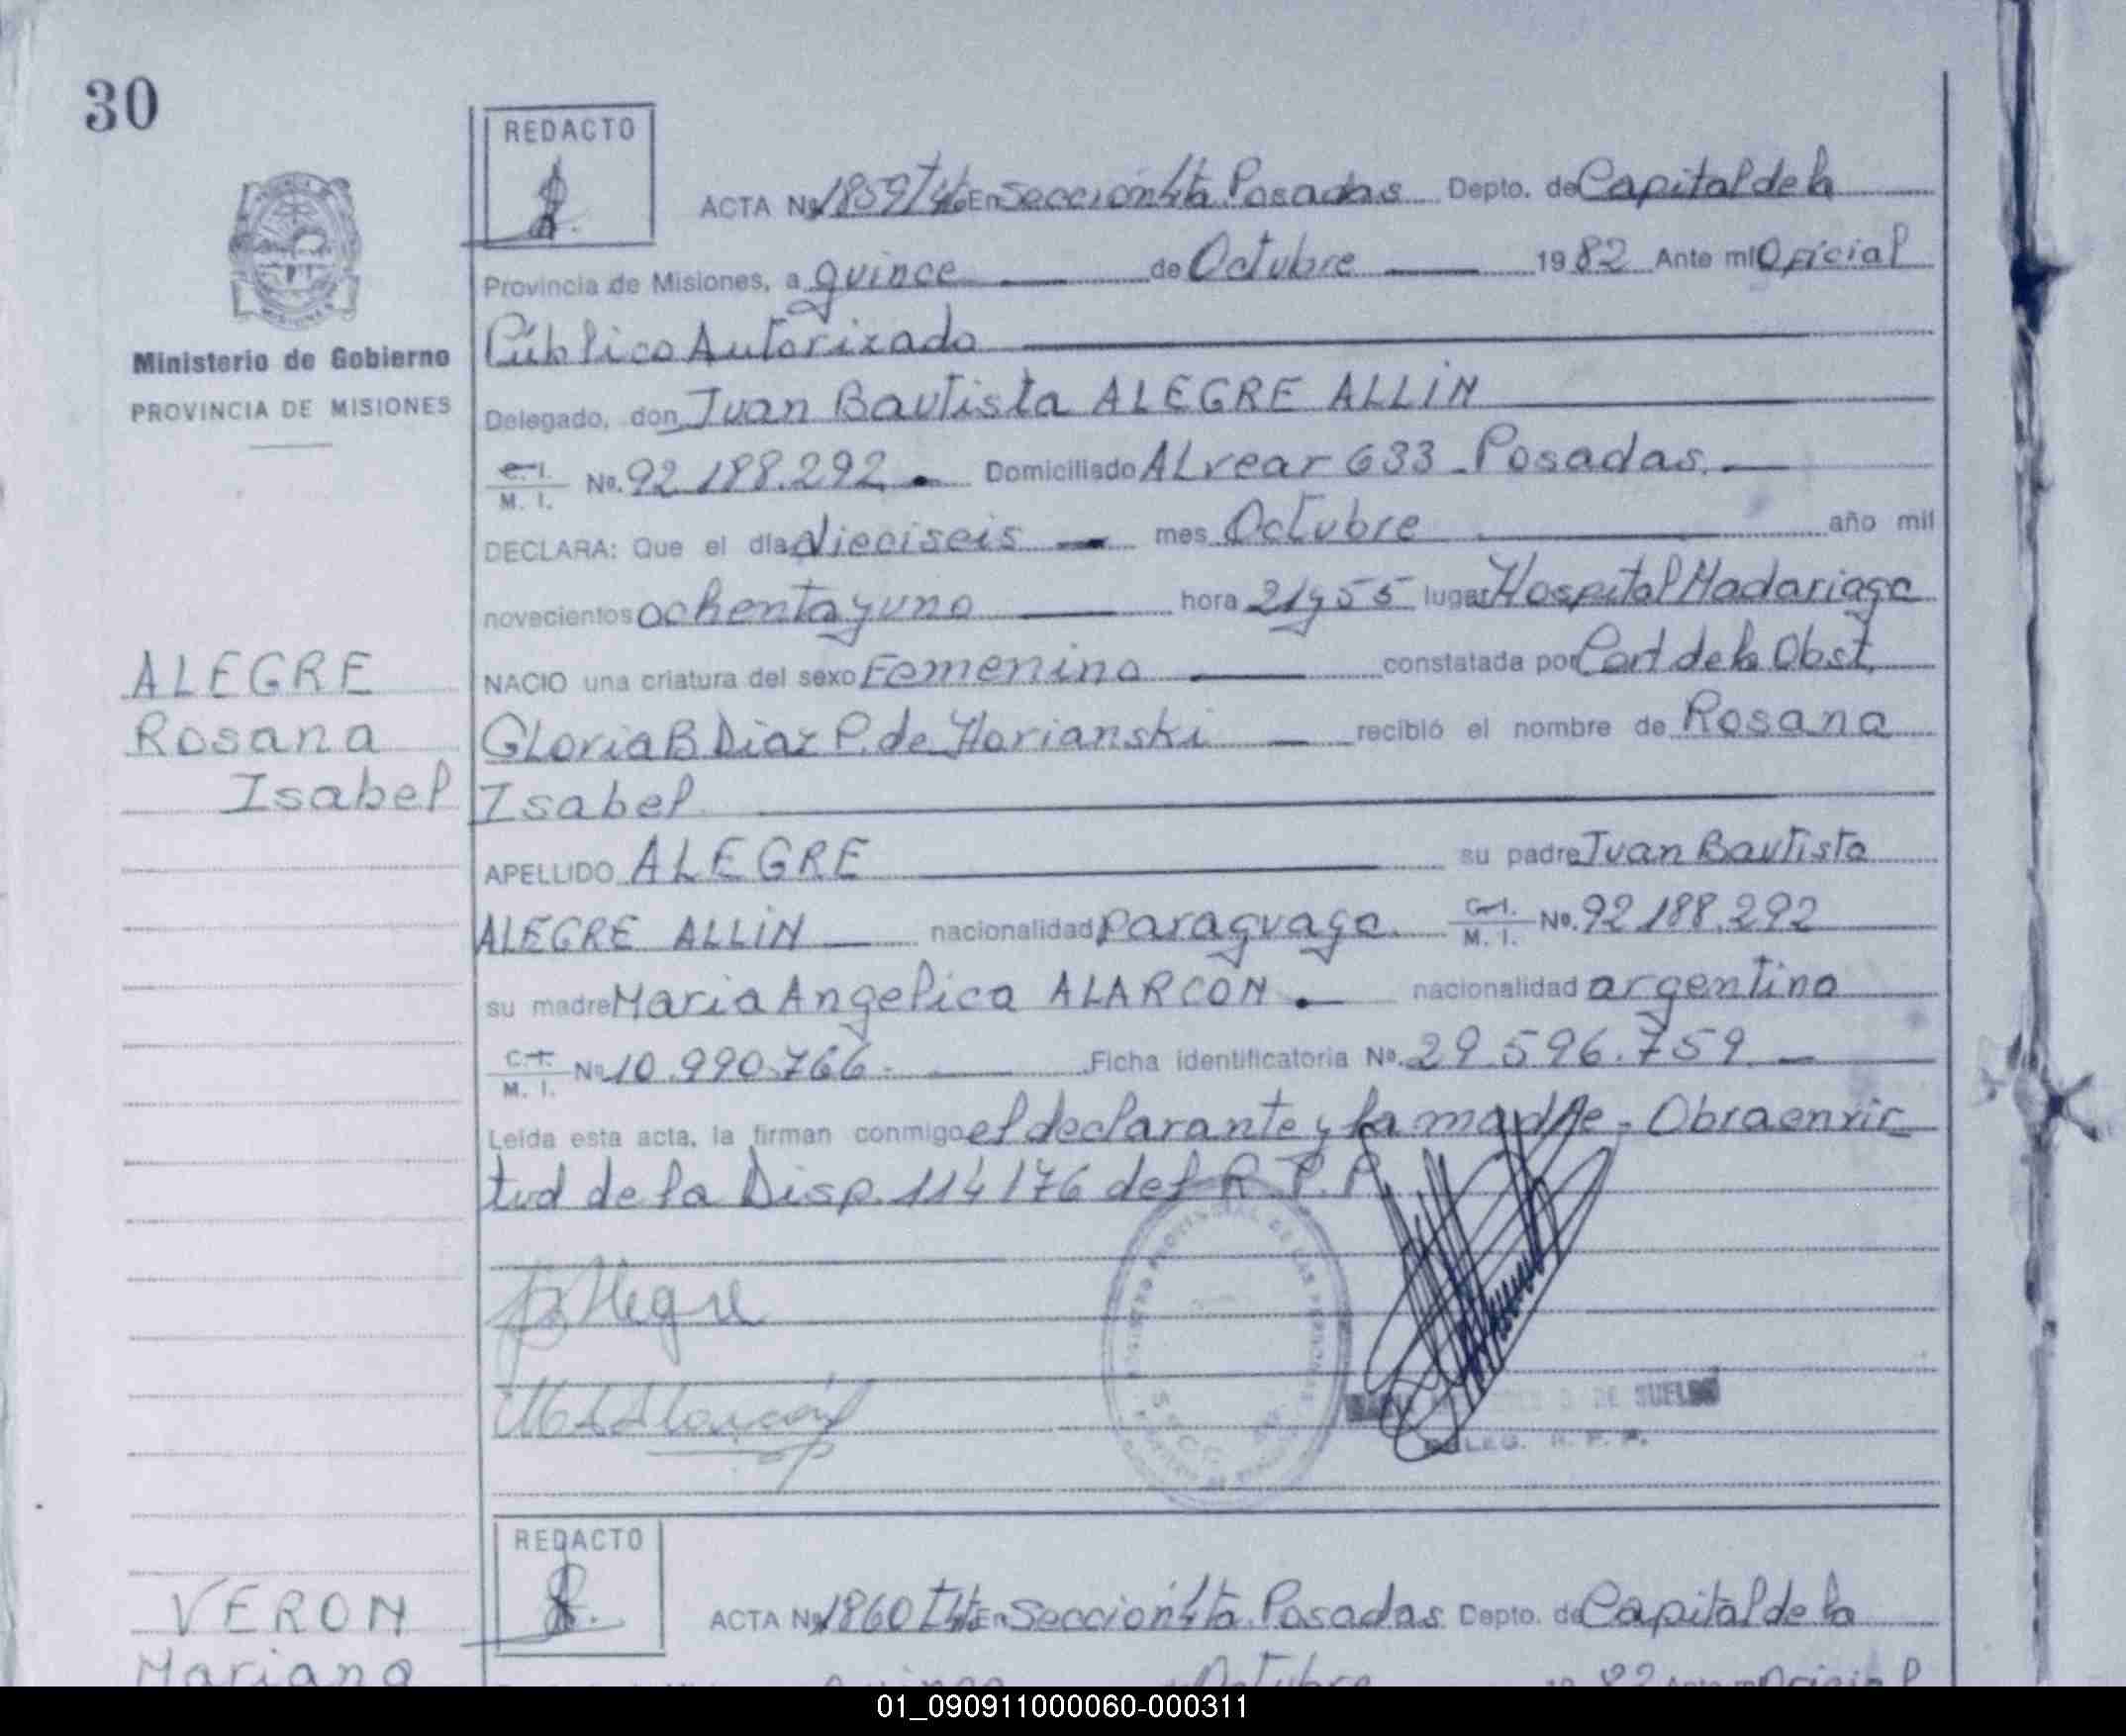 30
REDACTO
ACTA Nº 1859 T4to En Sección 4ta Posadas Depto. de Capital de la
Provincia de Misiones, a quince de Octubre 1982 Ante mi Oficial
Público Autorizado
Ministerio de Gobierno
PROVINCIA DE MISIONES
Delegado, don Juan Bautista ALEGRE ALLIN
C. I. / M. I. Nº. 92.188.292. Domiciliado ALvear 633 Posadas.
DECLARA: Que el día dieciseis mes Octubre año mil
novecientos ochenta y uno hora 21 y 55 lugar Hospital Madariaga
ALEGRE
Rosana
Isabel
NACIO una criatura del sexo Femenino constatada por Cert de la Obst.
GLoria B Diaz P. de Horianski recibió el nombre de Rosana
Isabel
APELLIDO ALEGRE su padre Juan Bautista
ALEGRE ALLIN nacionalidad paraguaya. C. I. / M. I. Nº. 92.188.292
su madre Maria Angelica ALARCON. nacionalidad argentina
C. I. / M. I. Nº 10.990.766. Ficha identificatoria Nº. 29.596.759
Leída esta acta, la firman conmigo el declarante y la madre. Obra en vir
tud de la Disp. 114/76 del R.P.P.
Alegre
REGISTRO PROVINCIAL DE LAS PERSONAS
DE SUELDO
DELEG. R. P. P.
REDACTO
VERON
Mariana
ACTA Nº 1860 T4to En Sección 4ta Posadas Depto. de Capital de la
quince Octubre 1982 Ante mi Oficial
01_090911000060-000311